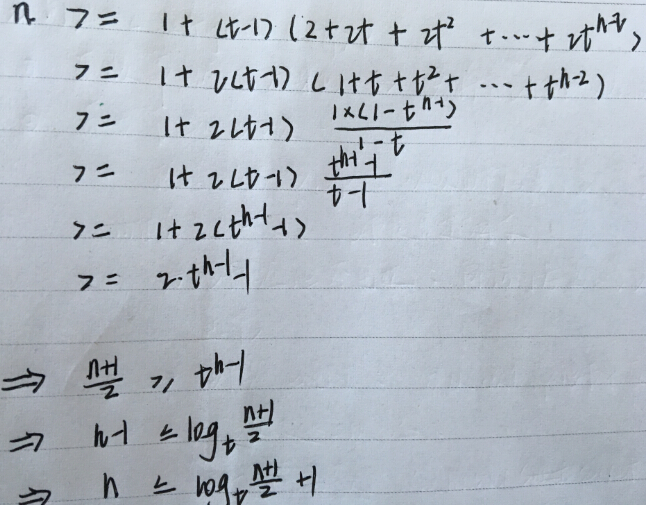 n >= 1 + (t-1) (2 + 2t + 2t² + ⋯ + 2t^{h-2})
>= 1 + 2(t-1) (1 + t + t² + ⋯ + t^{h-2})
>= 1 + 2(t-1) \frac{1×(1-t^{h-1})}{1-t}
>= 1 + 2(t-1) \frac{t^{h-1}-1}{t-1}
>= 1 + 2(t^{h-1}-1)
>= 2·t^{h-1}-1
⇒ \frac{n+1}{2} ≥ t^{h-1}
⇒ h-1 ≤ log_t \frac{n+1}{2}
⇒ h ≤ log_t \frac{n+1}{2} + 1